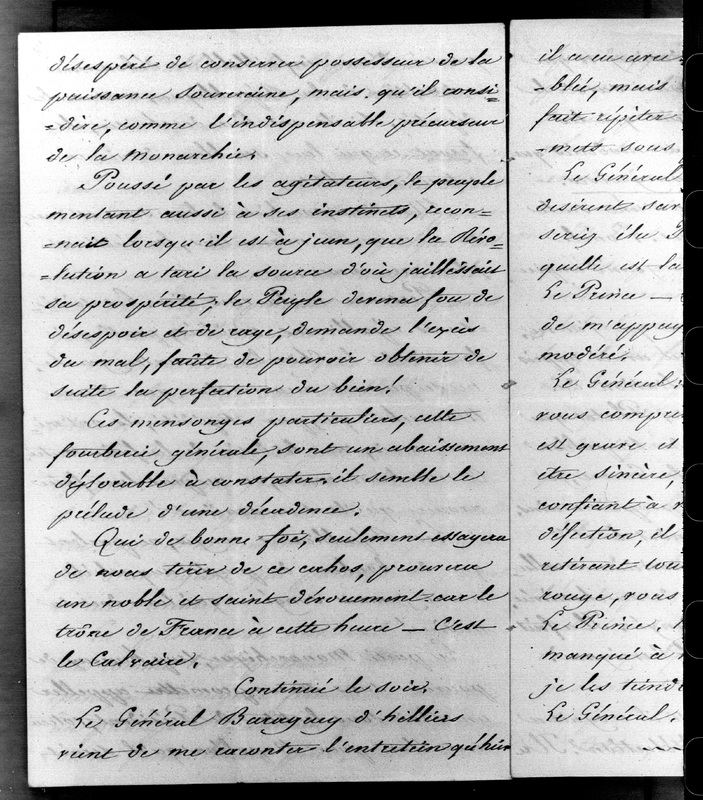 désespéré de conserver possesseur de la
puissance souveraine, mais qu'il consi-
-dère, comme l'indispensable précurseur
de la monarchie.
Poussé par les agitateurs, le peuple
mentant aussi à ses instincts, recon-
-nait lorsqu'il est à jeun, que la Révo-
-lution a tari la source d'où jaillissait
sa prospérité; le Peuple devenu fou de
désespoir et de rage, demande l'excès
du mal, faûte de pouvoir obtenir de
suite la perfection du bien!
Ces mensonges particuliers, cette
fourberie générale, sont un abaissement
déplorable à constater, il semble le
prélude d'une décadence.
Qui de bonne foi, seulement essayera
de nous tirer de ce cahos, prouvera
un noble et saint dévouement car le
trône de France à cette heure — C'est
le Calvaire.
Continué le soir.
Le Général Baraguey d'hilliers
vient de me raconter l'entretien qu'hier
il a eu avec
-blée, mais
fait répéter
-mets sous
Le Général
désirent sav
seriez élu P
quelle est la
Le Prince —
de m'appuy
modéré.
Le Général.
vous compre
est grave et
être sincère,
confiant à
défection, il
retirant tou
rouge, vous
Le Prince.
manqué à
je les tiend
Le Général.